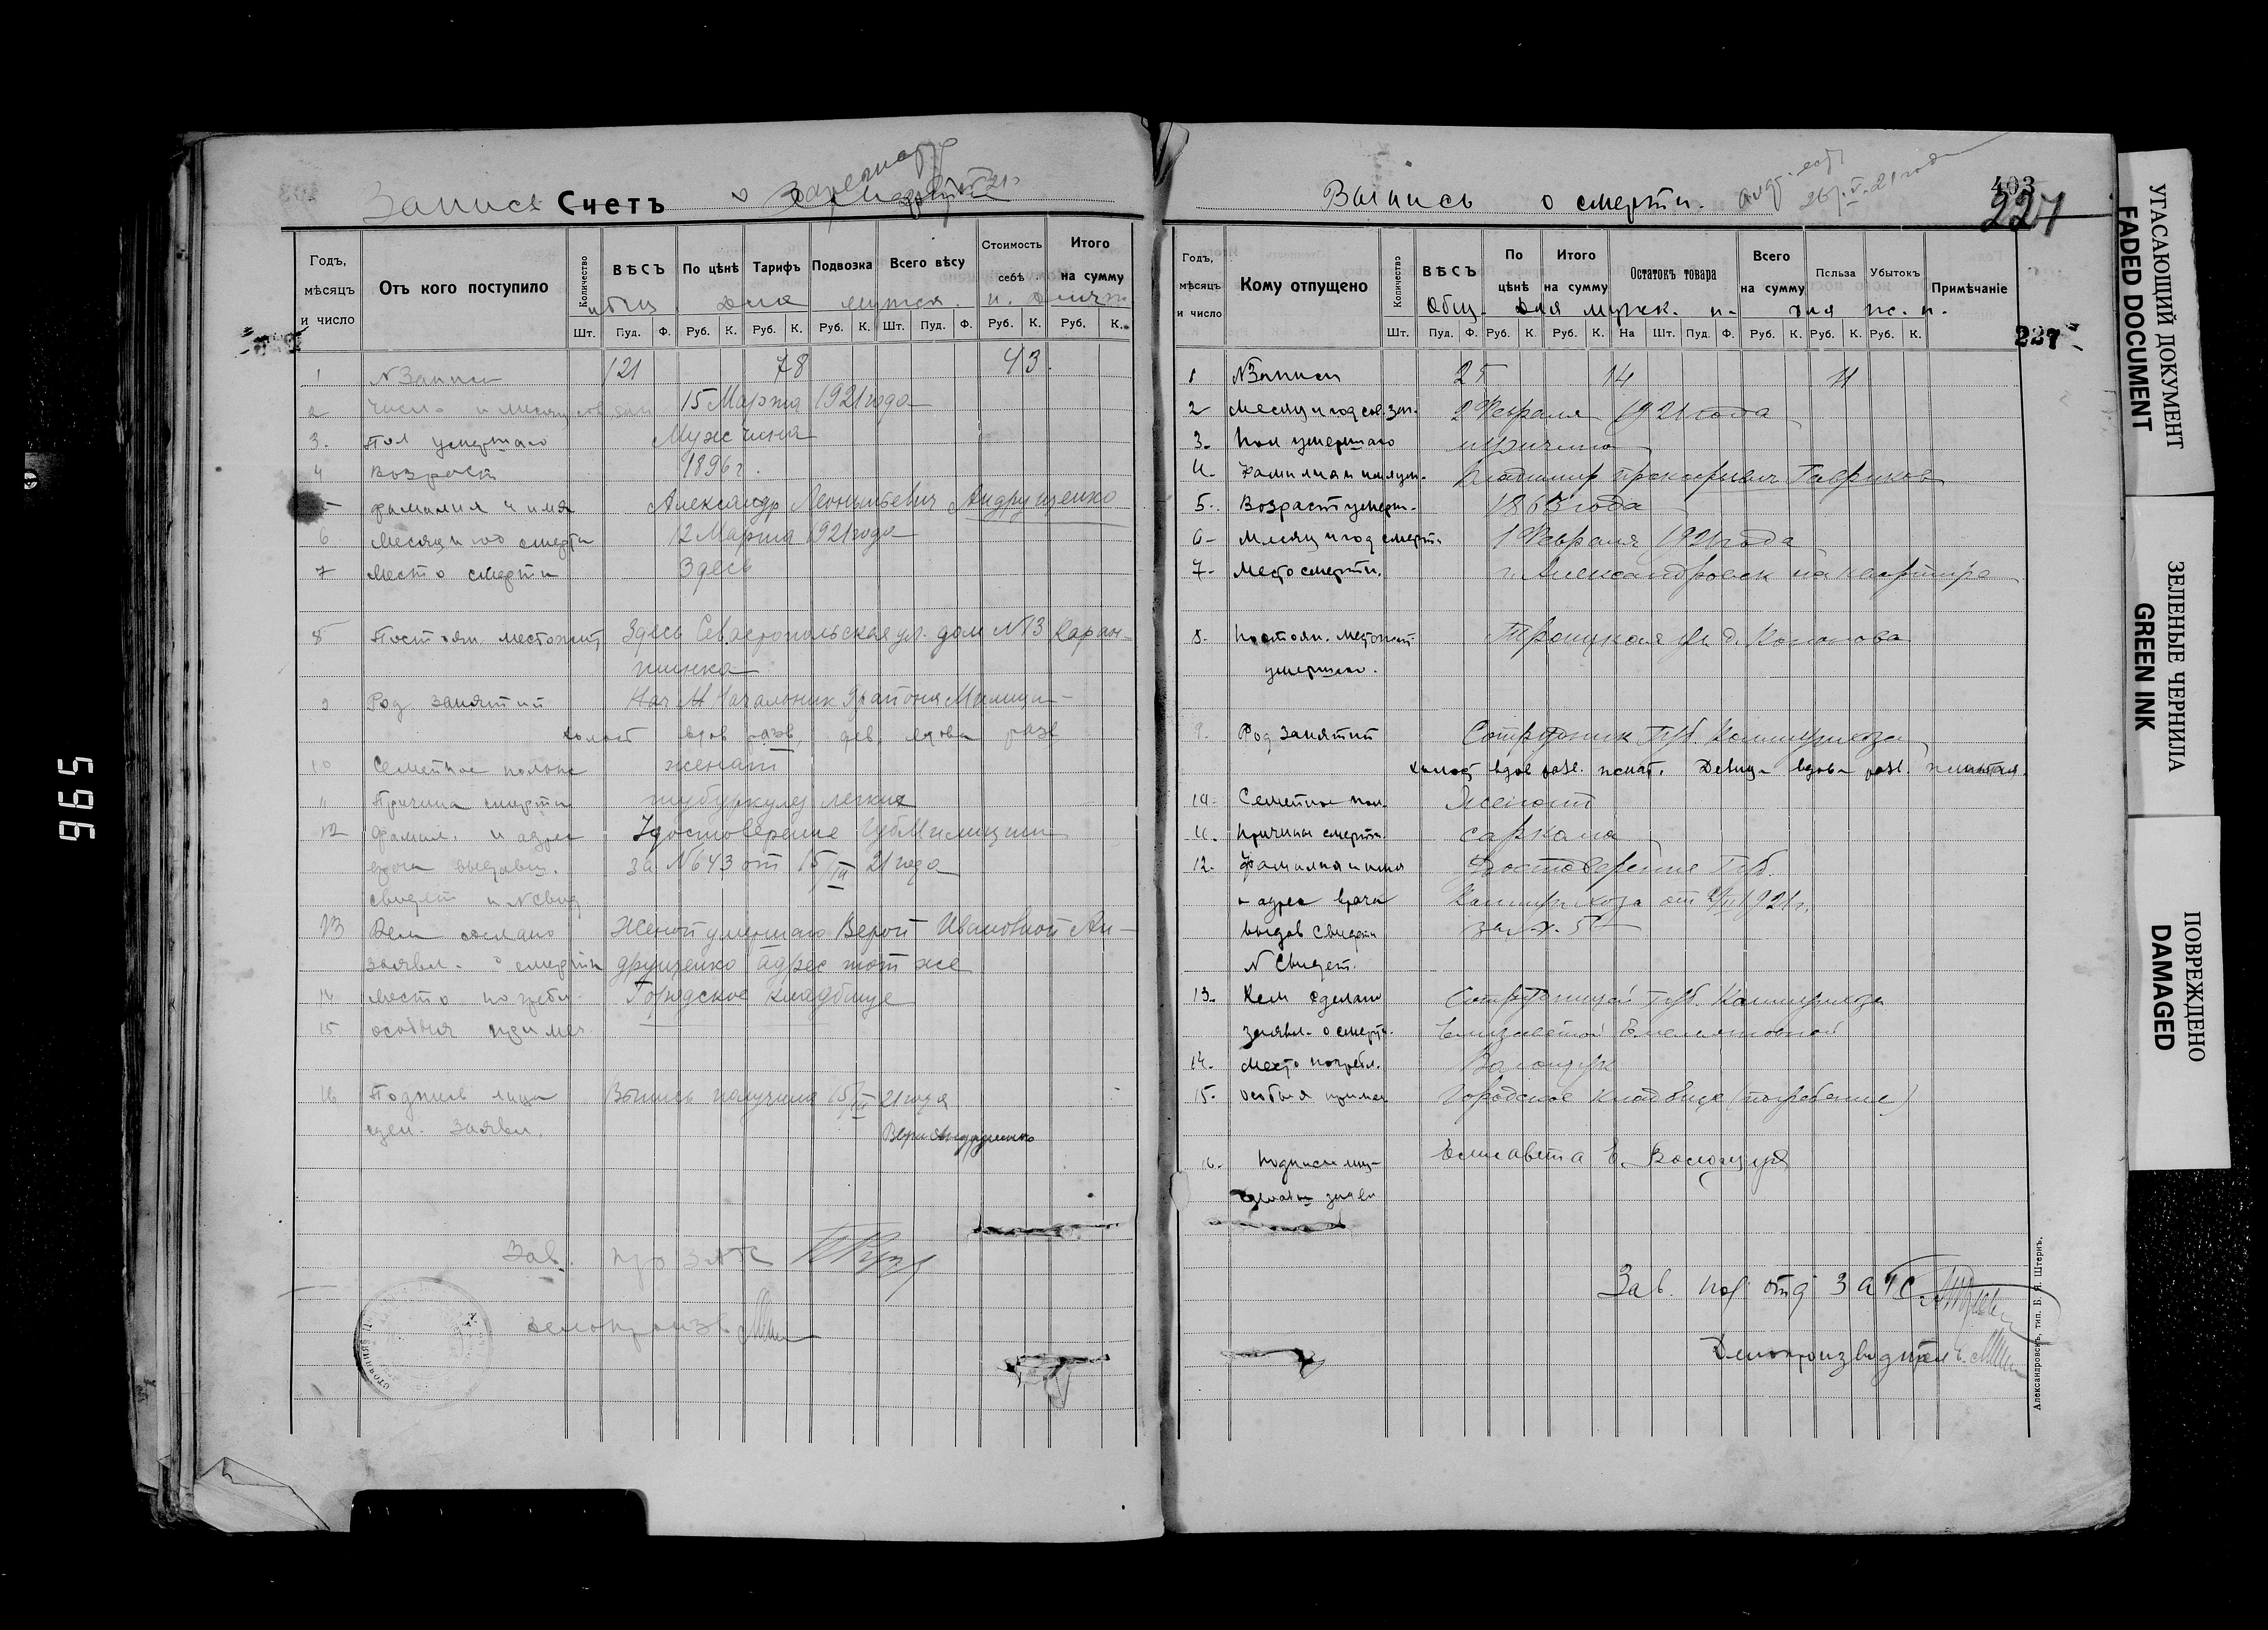 Запись Счетъ о смерти
Годъ, мѣсяцъ и число
Отъ кого поступило
Количество
ВѢСЪ
По цѣнѣ
Тарифъ
Подвозка
Всего вѣсу
Стоимость себѣ
Итого на сумму
общ. для мужск. и для ж
Шт. Пуд. Ф. Руб. К. Руб. К. Руб. К. Шт. Пуд. Ф. Руб. К. Руб. К.
1 N Записи 121 78 43
2 Число и месяц 15 Марта 1921 года
3. Пол умершаго Мужчина
4 Возраст 1896 г.
фамилия и имя Александр Леонтьевич Андрущенко
6 Месяц и год смерти 12 Марта 1921 года
7 Место смерти Здесь
8 Постоян. местожит. Здесь Севастопольская ул. дом N 13 Каран-
тинка
9 Род занятий Начальник района Милиции
холост вдов разв. дев. вдова разв
10 Семейное полож женат
11 Причина смерти туберкулез легких
12 Фамил. и адрес Удостоверение ГубМилиции
врача выдавш. за N 643 от 15/III 21 года
свидет и N свид.
13 Кем сделано Женой умершаго Верой Ивановной Ан-
заявл. о смерти друщенко адрес тот же
14 место погребл. Городское кладбище
15 особыя примеч.
16 Подпись лица Выпись получила 15/III 21 года
сдел. заявл. Вера Андрущенко
Зав.
делопроизв.
Выпись о смерти.
26/V-21 года
403
227
Годъ, мѣсяцъ и число
Кому отпущено
Количество
ВѢСЪ
По цѣнѣ
Итого на сумму
Остатокъ товара
Всего на сумму
Польза
Убытокъ
Примѣчаніе
Общ. для мужск. и. для ж. п.
Шт. Пуд. Ф. Руб. К. Руб. К. На Шт. Пуд. Ф. Руб. К. Руб. К. Руб. К.
227
1 N Записи 25 14 11
2 Месяц и год сов. зап. 2 Февраля 1921 года
3. Пол умершаго мужчина
4. Фамилия и имя ум. Владимир Прокофьевич Гавриков
5. Возраст умерш. 1863 года
6. Месяц и год смерти 1 Февраля 1921 года
7. Место смерти. г. Александровск на квартире
8. Постоян. местожит. Троицкая ул. д.
умершаго.
9. Род занятий Сотрудник Губ.
холост вдов разв. женат. Девица вдова разв. замужняя.
10. Семейное пол. Женат
11. Причина смерти саркома
12. Фамилия и имя Удостоверение Губ.
и адрес врача от 2/II 1921 г.
выдав свидет за N. 5
N Свидет.
13. Кем сделано Сотрудницей Губ.
заявл. о смерти. Елизаветой Емельяновной
14. Место погребл.
15. Особыя примеч Городское кладбище (погребение)
16. Подпись лица Елисавета Е.
сделавш заявл
Зав. под отд ЗАГС
Делопроизводитель
Александровскъ, тип. Б. Я. Штернъ.
УГАСАЮЩИЙ ДОКУМЕНТ
FADED DOCUMENT
ЗЕЛЕНЫЕ ЧЕРНИЛА
GREEN INK
ПОВРЕЖДЕНО
DAMAGED
965